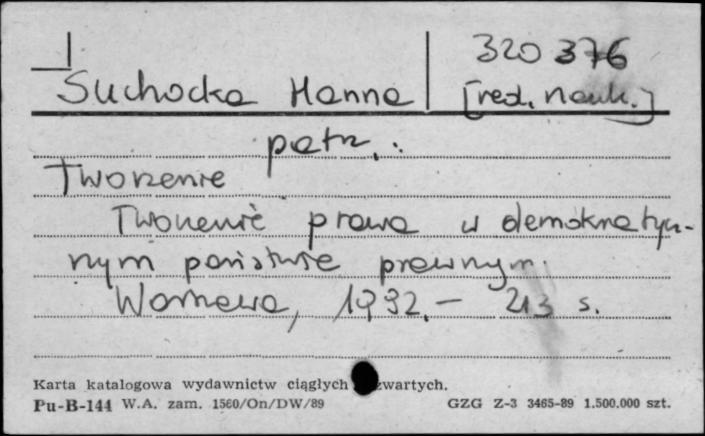 320 376
Suchocka Hanna [red. nauk.]
patrz:
Tworzenie
Tworzenie prawa w demokratycz-
nym państwie prawnym.
Warszawa, 1992. – 213 s.
Karta katalogowa wydawnictw ciągłych zwartych.
Pu-B-144 W.A. zam. 1560/On/DW/89 GZG Z-3 3465-89 1.500.000 szt.